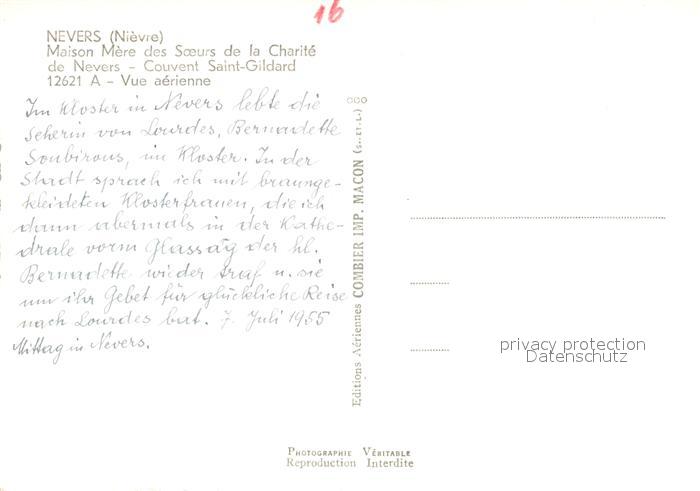 16
NEVERS (Nièvre)
Maison Mère des Sœurs de la Charité
de Nevers - Couvent Saint-Gildard
12621 A - Vue aérienne
Im Kloster in Nevers lebte die
Seherin von Lourdes, Bernadette
Soubirous, im Kloster. In der
Stadt sprach ich mit braunge-
kleideten Klosterfrauen, die ich
dann abermals in der Kathe-
drale vorm Glassarg der hl.
Bernadette wieder traf u. sie
um ihr Gebet für glückliche Reise
nach Lourdes bat. 7. Juli 1955
Mittag in Nevers.
Editions Aériennes COMBIER IMP. MACON (S.-ET-L.)
privacy protection
Datenschutz
PHOTOGRAPHIE VÉRITABLE
Reproduction Interdite